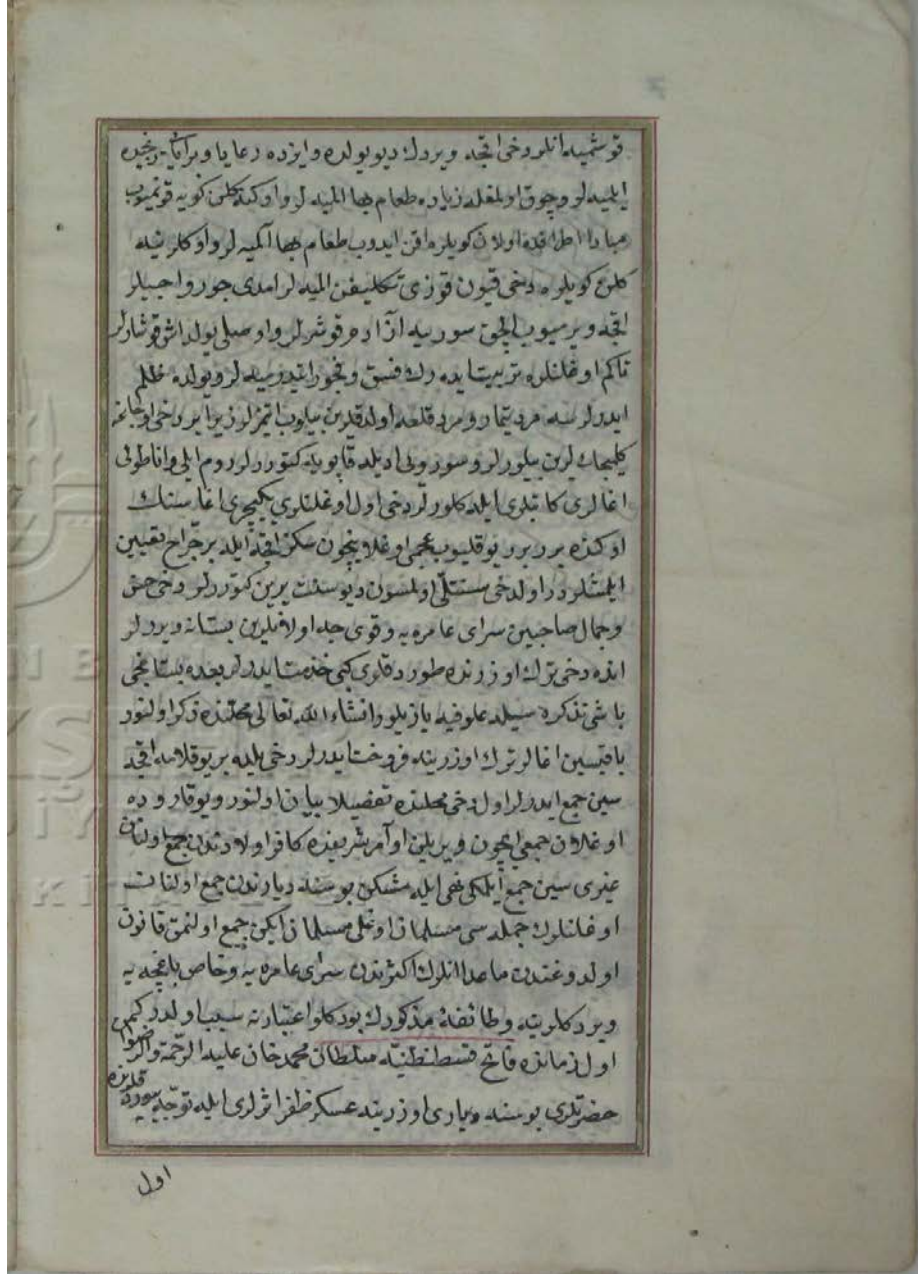 قوشميه انلر دخی اقچه ويردك ديو يولده و ايزده رعايا و برايا رنجيده
ايلميه لر و چوق اولمغله زياده طعام بها الميه لر و اوكنه كلن كويه قونميوب
مبادا اطرافده اولان كويلره اقن ايدوب طعام بها المیه لر و اوكلرينه
كلن كويلره دخی قيون قوزی تكليفن الميه لر امدی جور واجبيلر
اقچه ويرميوب الجق سوريه آزاده قوشرلر و اوصلی يولداش قوشارلر
تاكم اوغلانلره تربيت ايده رك فسق و فجور ايتدرميه لر و يولده ظلم
ايدرلرسه مرد تيمار و مرد قلعه اولدقلرين بيلوب ايتمزلر زيرا اير دخی اوجاغه
كليجكلرين بيلورلر و سوروی اديله قاپويه كتوررلر روم ايلی و اناطولی
اغالری كاتبلری ايله كلورلر دخی اول اوغلنلری يكيچری اغاسنك
اوكنده برر برر يوقليوب عجمی اوغلان ايچون سكز اقچه ايله بر جراح تعيين
ايلمشلردر اول دخی سنتلی اولمسون ديو سنت يرين كتوررلر دخی حسن
و جمال صاحبين سرای عامره يه و قوی جه اولانلرين بستانه ويررلر
انده دخی ترك اوزرنده طوردقلری كبی خدمت ايدرلر بعده بستانجی
باشی تذكره سيله علوفيه يازيلور انشاء الله تعالی محلنده ذكر اولنور
باقيسين اغالر ترك اوزرينه فروخت ايدرلر دخی يله بر يوقلامه اقچه
سين جمع ايدرلر اول دخی محلنده تفصيلا بيان اولنور و يوقاروده
اوغلان جمعی ايچون ويريلن اوامر شريفده كافر اولادندن جمع اولنان
غيری سين جمع ايلمكی نهی ايله مشكن بوسنه ديارندن جمع اولنان
اوغلنلرك جمله سی مسلمان اوغلی مسلمان ايكن جمع اولنمق قانون
اولدوغندن ماعدا انلرك اكثرندن سرای عامره يه و خاص باغچه يه
ويردكلرينه و طائفهٔ مذكورك بو دكلو اعتبارنه سبب اولدر كيم
اول زمانده فاتح قسطنطنيه سلطان محمد خان عليه الرحمة والرضوان
حضرتلری بوسنه دياری اوزرينه عسكر ظفر اثرلری ايله توجه بيوردقلرنده
اول